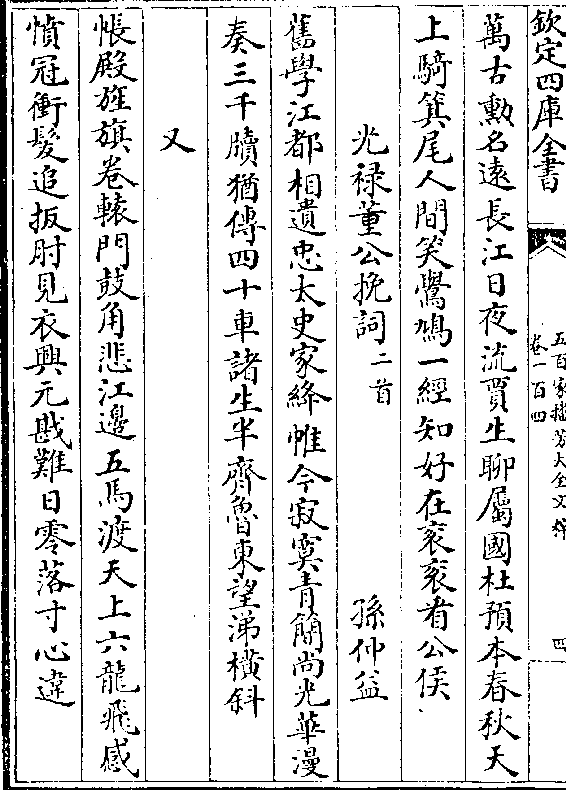 欽定四庫全書
五百家播芳大全文粹
卷一百四
四
萬古勲名遠長江日夜流賈生聊屬國杜預本春秋天
上騎箕尾人間笑鷽鳩一經知好在衮衮看公侯
光禄董公挽詞二首
孫仲益
舊學江都相遺忠太史家絳帷今寂寞青簡尚光華漫
奏三千牘猶傳四十車諸生半齊魯東望涕横斜
又
帳殿旌旗卷轅門鼓角悲江邊五馬渡天上六龍飛感
憤冠衝髪追扳肘見衣興元戡難日零落寸心違